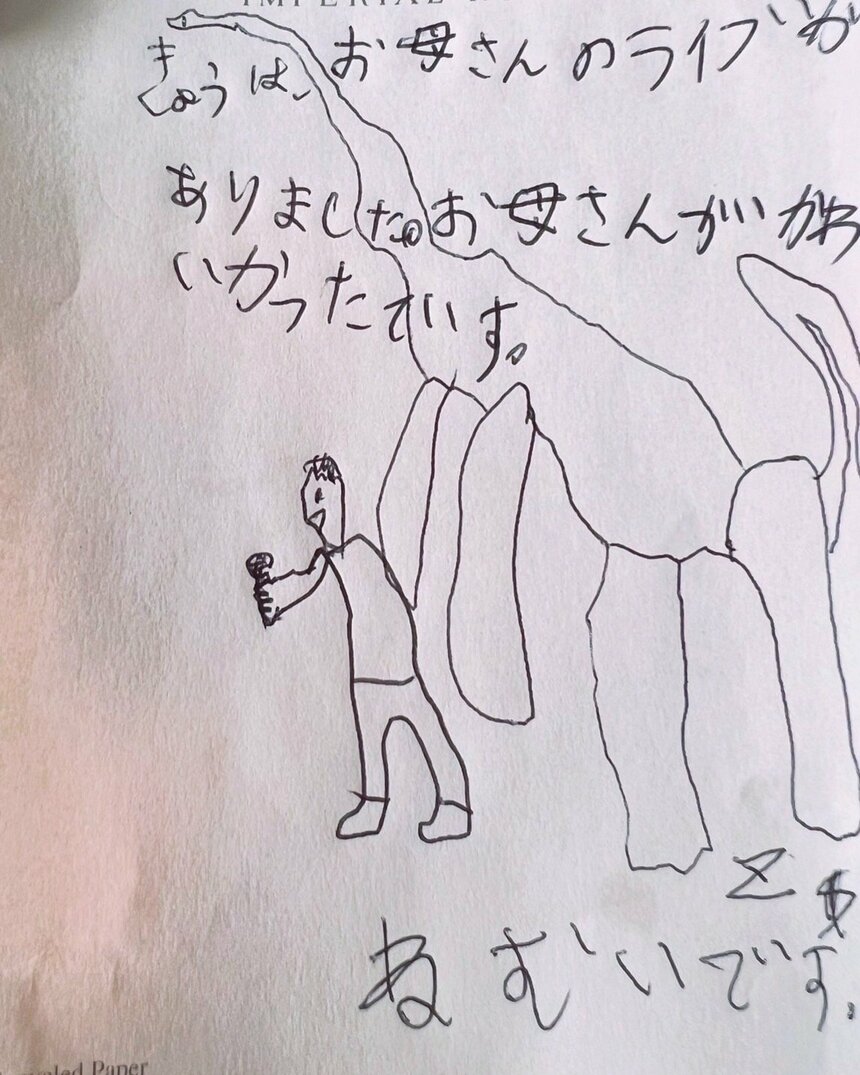 IMPERIAL
きょうは、お母さんのライブが
ありました。お母さんがかわ
いかったでいす。
ねむいです。
Paper